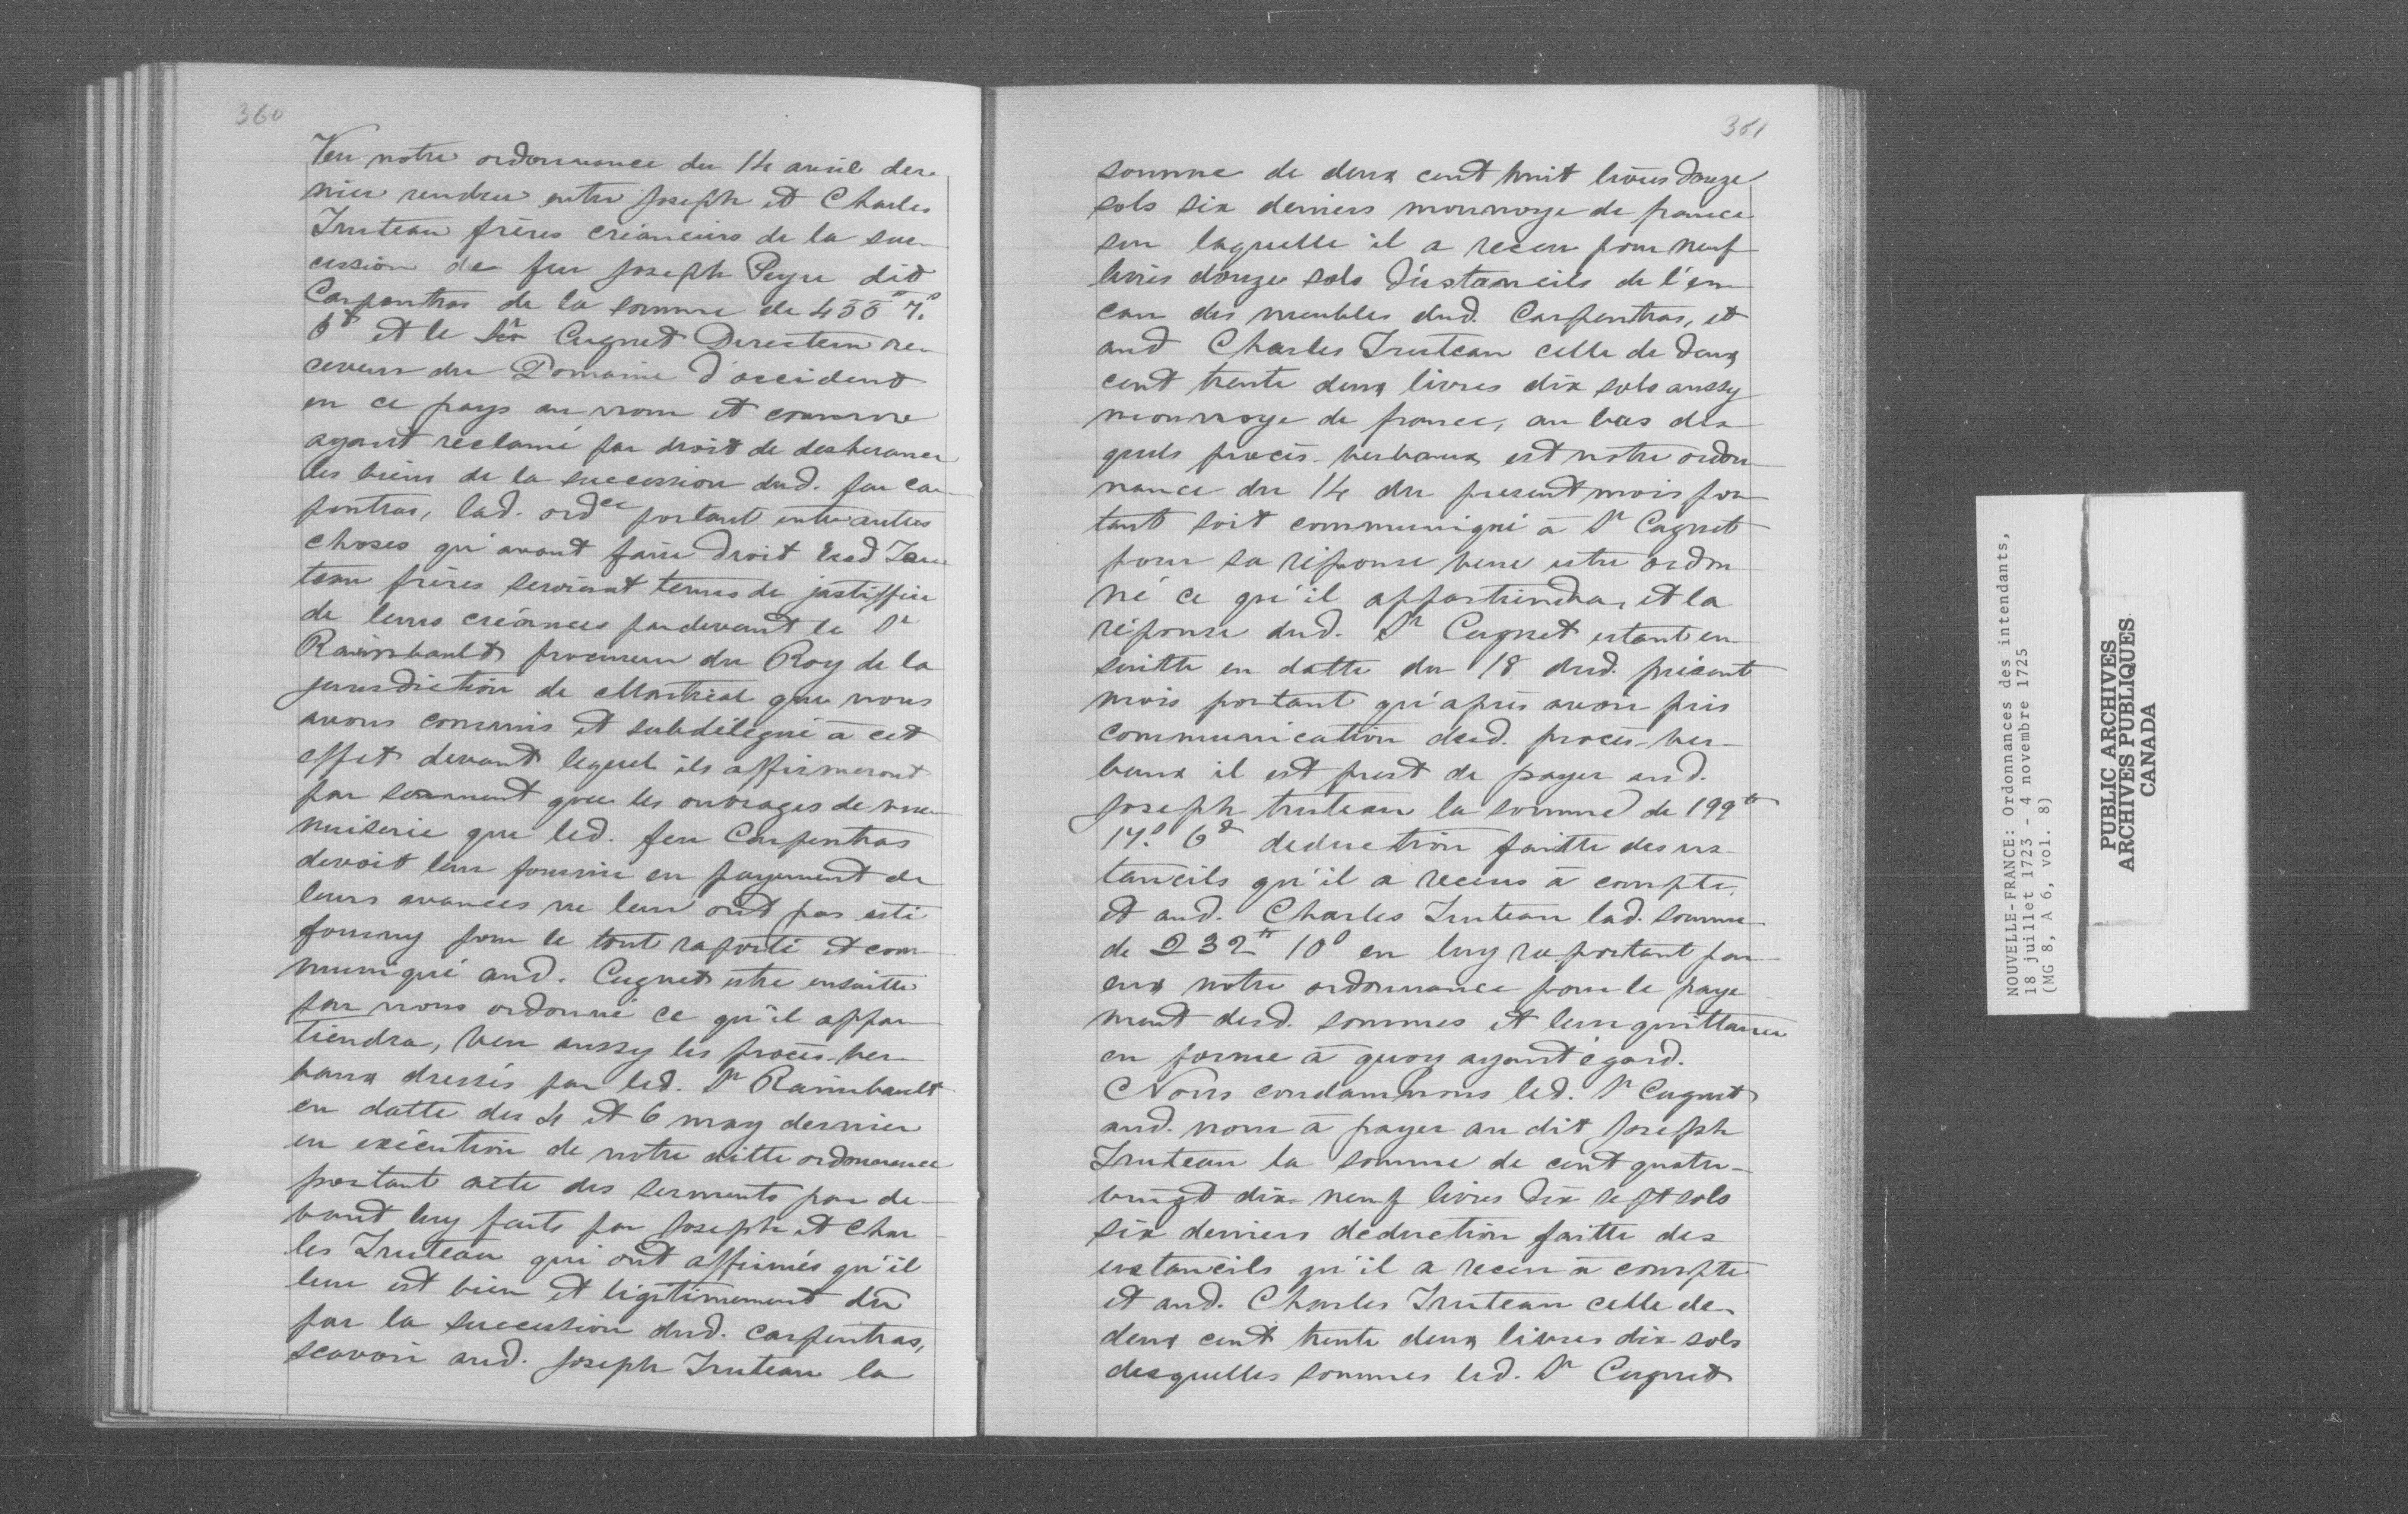 360
Veu notre ordonnance du 14 avril der-
nier rendue entre Joseph et Charles
Truteau frères créanciers de la suc-
cession de feu Joseph Peyre dit
Carpentras de la somme de 455tt 7s
6d et le Sr Cugnet Directeur re-
ceveur du Domaine d'occident
en ce pays au nom et comme
ayant réclamé par droit de desherance
les biens de la succession dud. feu Car-
pentras, lad. ordce portant entre autres
choses qu'avant faire droit lesd Tru-
teau frères seroient tenus de justiffier
de leurs créances pardevant le Sr
Raimbault procureur du Roy de la
jurisdiction de Montréal que nous
avons commis et subdélégué à cet
effet devant lequel ils affirmeront
par serment que les ouvrages de me-
nuiserie que led. feu Carpentras
devoit leur fournir en payement de
leurs avances ne leur ont pas esté
fourny pour le tout raporté et com-
muniqué aud. Cugnet estre ensuitte
par nous ordonné ce qu'il appar-
tiendra, veu aussy les procès-ver-
baux dressés par led. Sr Raimbault
en datte des 4 et 6 may dernier
en exécution de notre ditte ordonnance
portant acte des serments par de-
vant luy faits par Joseph et Char-
les Truteau qui ont affirmés qu'il
leur est bien et légitimement dû
par la succession dud. Carpentras,
scavoir aud. Joseph Truteau la
361
somme de deux cent huit livres douze
sols six deniers monnoye de france
sur laquelle il a receu pour neuf
livres douze sols d'ustancils de l'en-
can des meubles dud. Carpentras, et
aud Charles Truteau celle de deux
cent trente deux livres dix sols aussy
monnoye de france, au bas des-
quels procès-verbaux est notre ordon-
nance du 14 du present mois por-
tant soit communiqué à Sr Cugnet
pour sa réponse veue estre ordon-
né ce qu'il appartiendra, et la
réponse dud. Sr Cugnet estant en-
suitte en datte du 18 dud. présent
mois portant qu'après avoir pris
communication desd. procès-ver-
baux il est prest de payer aud.
Joseph truteau la somme de 199tt
17s 6d deduction faitte des us-
tancils qu'il a receus à compte,
et aud. Charles Truteau lad. somme
de 232tt 10s en luy raportant par
eux notre ordonnance pour le paye-
ment desd. sommes et leur quittance
en forme à quoy ayant égard.
Nous condamnons led. Sr Cugnet
aud. nom à payer au dit Joseph
Truteau la somme de cent quatre-
vingt dix-neuf livres dix sept sols
six deniers déduction faitte des
ustancils qu'il a receu à compte
et aud. Charles Truteau celle de
deux cent trente deux livres dix sols
desquelles sommes led. Sr Cugnet
NOUVELLE-FRANCE: Ordonnances des intendants,
18 juillet 1723 - 4 novembre 1725
(MG 8, A 6, vol. 8)
PUBLIC ARCHIVES
ARCHIVES PUBLIQUES
CANADA